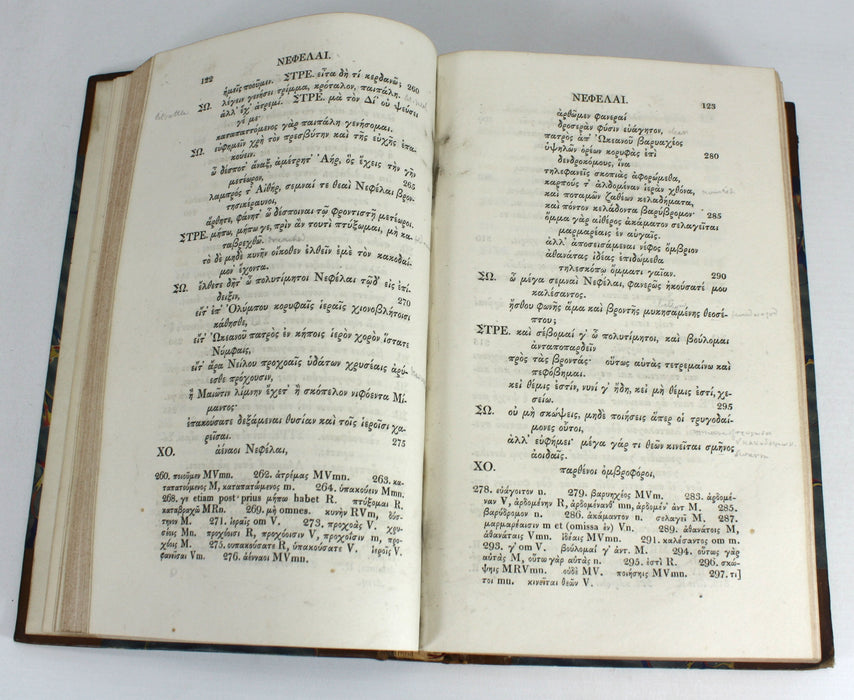 122
ΝΕΦΕΛΑΙ.
ἡμεῖς ποοῦμεν. ΣΤΡΕ. εἶτα δὴ τί κερδανῶ; 260
ΣΩ. λέγειν γενήσει τρίμμα, κρόταλον, παιπάλη.
ἀλλ' ἔχ' ἀτρεμί. ΣΤΡΕ. μὰ τὸν Δί' οὐ ψεύσει
γέ με·
καταπαττόμενος γὰρ παιπάλη γενήσομαι.
ΣΩ. εὐφημεῖν χρὴ τὸν πρεσβύτην καὶ τῆς εὐχῆς ἐπα-
κούειν.
ὦ δέσποτ' ἄναξ, ἀμέτρητ' Ἀὴρ, ὃς ἔχεις τὴν γῆν
μετέωρον, 265
λαμπρός τ' Αἰθὴρ, σεμναί τε θεαὶ Νεφέλαι βρον-
τησικέραυνοι,
ἄρθητε, φάνητ' ὦ δέσποιναι τῷ φροντιστῇ μετέωροι.
ΣΤΡΕ. μήπω, μήπω γε, πρὶν ἂν τουτὶ πτύξωμαι, μὴ κα-
ταβρεχθῶ.
τὸ δὲ μηδὲ κυνῆν οἴκοθεν ἐλθεῖν ἐμὲ τὸν κακοδαί-
μον' ἔχοντα.
ΣΩ. ἔλθετε δῆτ' ὦ πολυτίμητοι Νεφέλαι τῷδ' εἰς ἐπί-
δειξιν, 270
εἴτ' ἐπ' Ὀλύμπου κορυφαῖς ἱεραῖς χιονοβλήτοισι
κάθησθε,
εἴτ' Ὠκεανοῦ πατρὸς ἐν κήποις ἱερὸν χορὸν ἵστατε
Νύμφαις,
εἴτ' ἄρα Νείλου προχοαῖς ὑδάτων χρυσέαις ἀρύ-
εσθε πρόχουσιν,
ἢ Μαιῶτιν λίμνην ἔχετ' ἢ σκόπελον νιφόεντα Μί-
μαντος·
ὑπακούσατε δεξάμεναι θυσίαν καὶ τοῖς ἱεροῖσι χα-
ρεῖσαι. 275
ΧΟ. ἀέναοι Νεφέλαι,
260. ποιοῦμεν MVmn. 262. ἀτρέμας MVmn. 263. κα-
ταπατούμενος M, καταπατόμενος m. 264. ὑπακούειν Mmn.
268. γε etiam post prius μήπω habet R. πτύξομαι R.
καταβροχῶ MRn. 269. μὴ omnes. κυνὴν RVm, δύσ-
τηνον M. 271. ἱεραῖς om V. 273. προχοὰς V. χρυ-
σέοις Mn. προχόισι R, προχόοισιν V, προχοῖσιν m, προ-
χέοις M. 275. ουπακούσετε R, ὑπακούσετε V. ἱεροῖς V.
φανεῖσαι Vm. 276. ἀένναοι MVmn.
ΝΕΦΕΛΑΙ. 123
ἀρθῶμεν φανεραὶ
δροσερὰν φύσιν εὐάγητον,
πατρὸς ἀπ' Ὠκεανοῦ βαρυαχέος
ὑψηλῶν ὀρέων κορυφὰς ἐπὶ 280
δενδροκόμους, ἵνα
τηλεφανεῖς σκοπιὰς ἀφορώμεθα,
καρπούς τ' ἀλδομέναν ἱερὰν χθόνα,
καὶ ποταμῶν ζαθέων κελαδήματα,
καὶ πόντον κελάδοντα βαρύβρομον· 285
ὄμμα γὰρ αἰθέρος ἀκάματον σελαγεῖται
μαρμαρέαις ἐν αὐγαῖς.
ἀλλ' ἀποσεισάμεναι νέφος ὄμβριον
ἀθανάτας ἰδέας ἐπιδώμεθα
τηλεσκόπῳ ὄμματι γαῖαν. 290
ΣΩ. ὦ μέγα σεμναὶ Νεφέλαι, φανερῶς ἠκούσατέ μου
καλέσαντος.
ᾔσθου φωνῆς ἅμα καὶ βροντῆς μυκησαμένης θεοσέ-
πτου;
ΣΤΡΕ. καὶ σέβομαί γ' ὦ πολυτίμητοι, καὶ βούλομαι
ἀνταποπαρδεῖν
πρὸς τὰς βροντάς· οὕτως αὐτὰς τετρεμαίνω καὶ
πεφόβημαι.
κεἰ θέμις ἐστίν, νυνί γ' ἤδη, κεἰ μὴ θέμις ἐστί, χε-
σείω. 295
ΣΩ. οὐ μὴ σκώψεις, μηδὲ ποιήσεις ἅπερ οἱ τρυγοδαί-
μονες οὗτοι,
ἀλλ' εὐφήμει· μέγα γάρ τι θεῶν κινεῖται σμῆνος
ἀοιδαῖς.
ΧΟ. παρθένοι ὀμβροφόροι,
278. εὐάγοιτον n. 279. βαρυηχέος MVm. 283. ἀρδομέ-
ναν V, ἀρδομένην R, ἀρδομένανθ' mn, ἀρδομέν' ἀντ M. 285.
βαρύδρομον n. 286. ἀκάμαντον n. σελαγεῖ M. 287.
μαρμαρέαισιν m et (omissa ἐν) Vn. 289. ἀθανάτοις M,
ἀθανάταις Vmn. ἰδέαις MVmn. 291. καλέσαντος om m.
293. γ' om V. βούλομαί γ' ἀντ M. 294. οὕτως γὰρ
αὐτὰς M, οὕτω γὰρ αὐτὰς n. 295. ἐστὶ R. 296. σκώ-
ψηις MRVmn. οὐδὲ MV. ποιήσῃς MVmn. 297. τι]
τοι mn. κινεῖται θεῶν V.